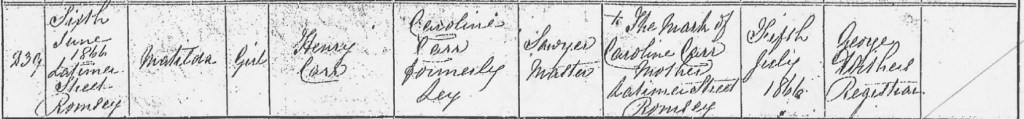 239
Sixth
June
1866
Latimer
Street
Romsey
Matilda
Girl
Henry
Carr
Caroline
Carr
formerly
Ley
Sawyer
Master
X The Mark of
Caroline Carr
Mother
Latimer Street
Romsey
Fifth
July
1866
George
Withers
Registrar